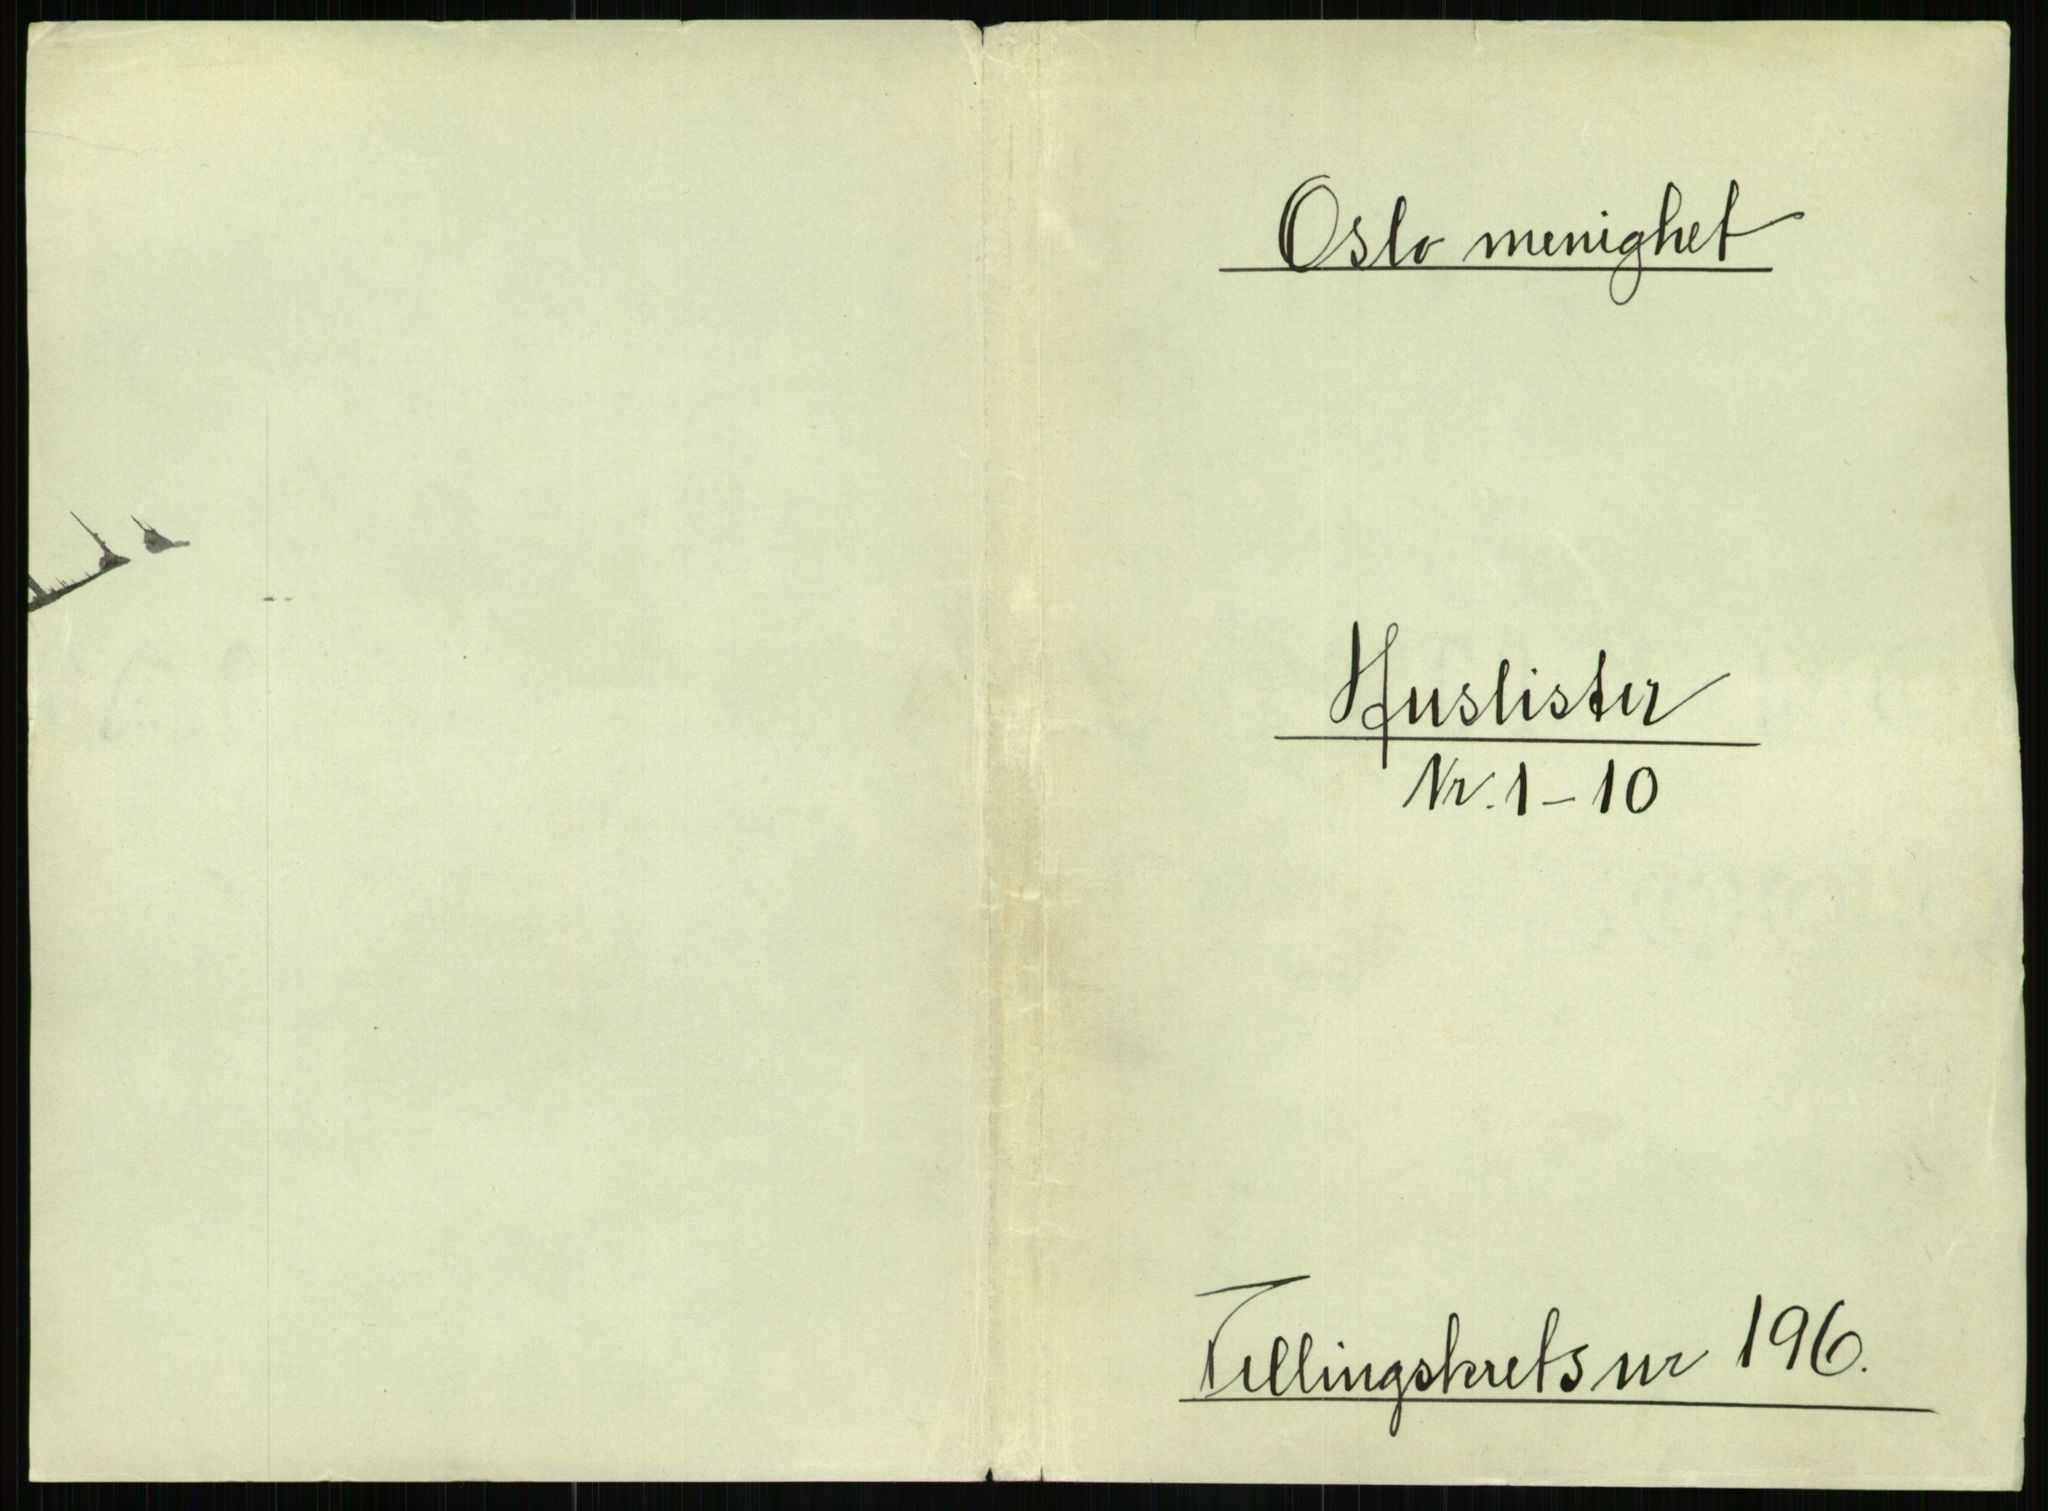 Oslo menighet
Huslister
Nr. 1-10
Tellingskrets nr 196.